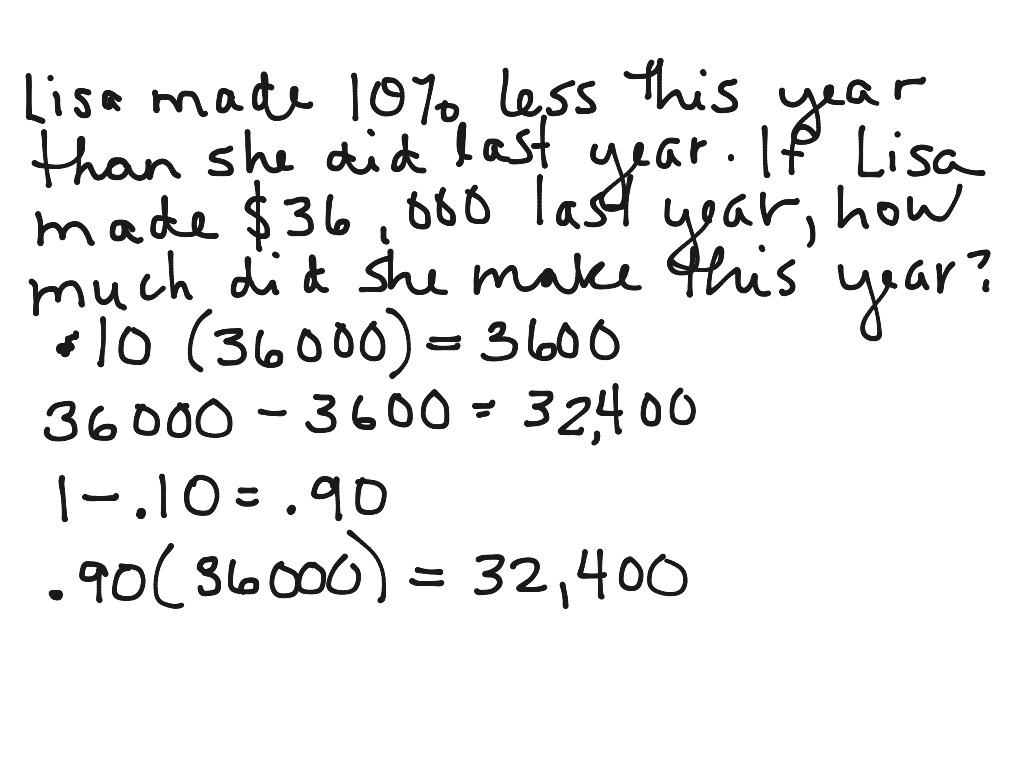 Lisa made 10% less this year
than she did last year. If Lisa
made $36,000 last year, how
much did she make this year?
.10 (36000) = 3600
36000 - 3600 = 32,400
1 - .10 = .90
.90(36000) = 32,400